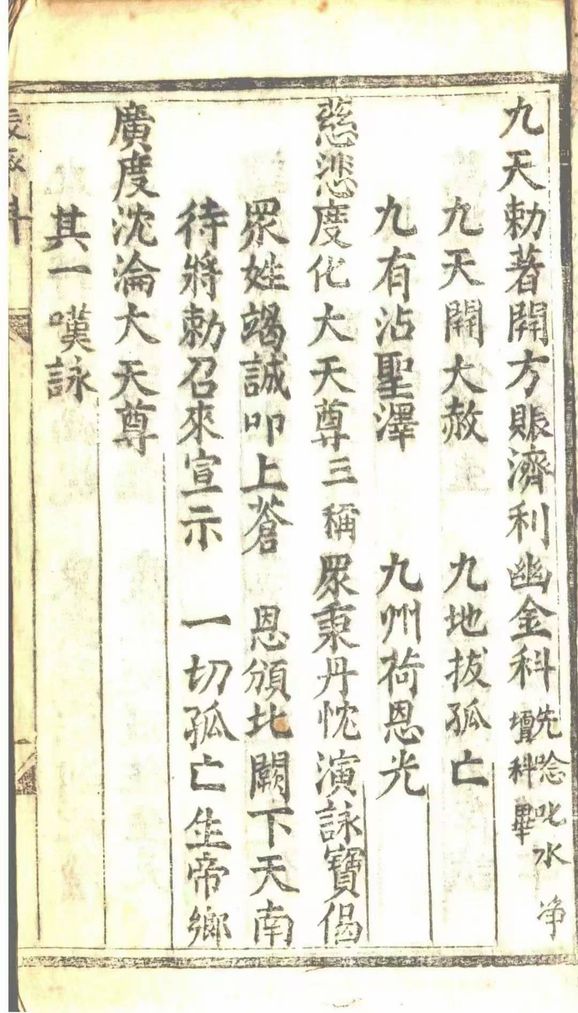 九天勅著開方賑濟利幽金科 先唸叱水净
壇科畢
九天開大赦 九地拔孤亡
九有沾聖澤 九州荷恩光
慈悲度化大天尊三稱 眾秉丹忱演詠寶偈
眾姓竭誠叩上蒼 恩頒北闕下天南
待將勅召來宣示 一切孤亡生帝鄉
廣度沈淪大天尊
其一嘆詠